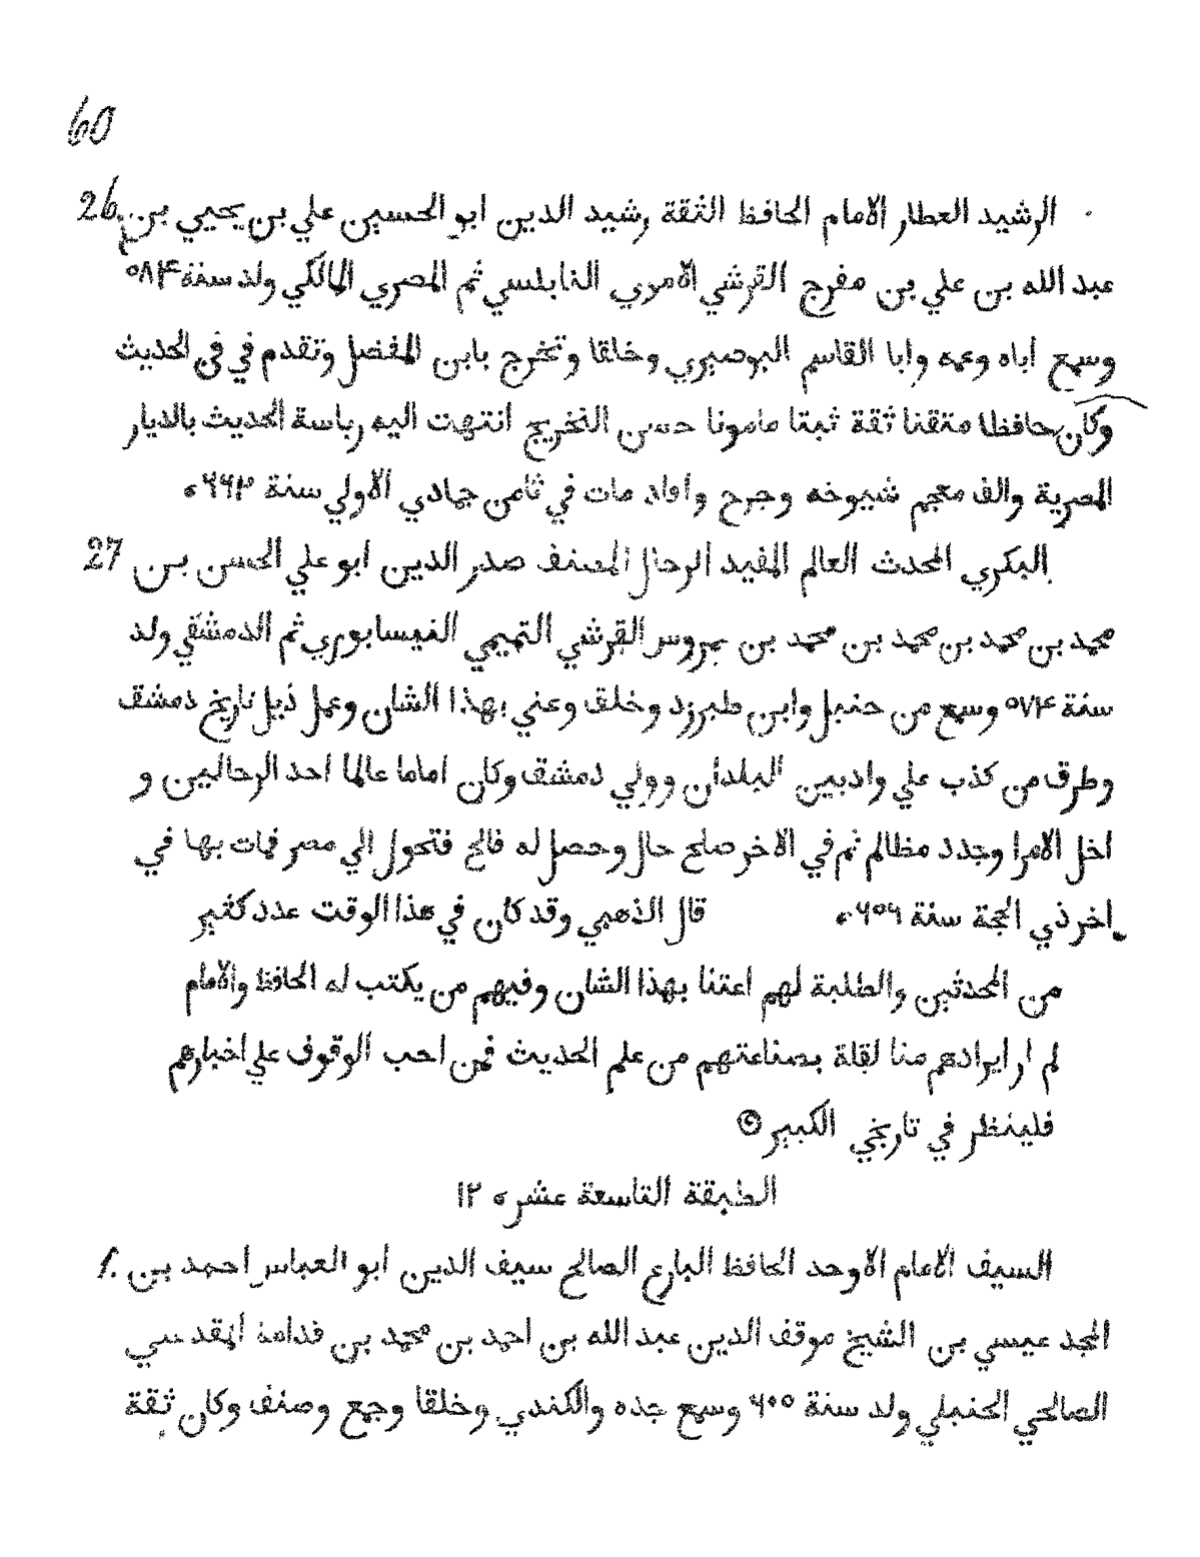 60
الرشيد العطار الامام الحافظ الثقة رشيد الدين ابو الحسين علي بن يحيي بن 26
عبد الله بن علي بن مفرج القرشي الاموي النابلسي ثم المصري المالكي ولد سنة ٥٨۴
وسمع اباه وعمه وابا القاسم البوصيري وخلقا وتخرج بابن المفضل وتقدم في فن الحديث
وكان حافظا متقنا ثقة ثبتا مامونا حسن التخريج انتهت اليه رياسة الحديث بالديار
المصرية والف معجم شيوخه وجرح وافاد مات في ثامن جمادي الاولي سنة ٦٦٢ ه
البكري المحدث العالم المفيد الرحال المصنف صدر الدين ابو علي الحسن بن 27
محمد بن محمد بن محمد بن محمد بن عمروس القرشي التميمي النيسابوري ثم الدمشقي ولد
سنة ٥٧۴ وسمع من حنبل وابن طبرزد وخلق وعني بهذا الشان وعمل ذيل تاريخ دمشق
وطرق من كذب علي واربعين البلدان وولي دمشق وكان اماما عالما احد الرحالين و
اخل الامرا وجدد مظالم ثم في الاخر صلح حال وحصل له فالج فتحول الي مصر فمات بها في
اخر ذي الحجة سنة ٦٥٦ ه قال الذهبي وقد كان في هذا الوقت عدد كثير
من المحدثين والطلبة لهم اعتنا بهذا الشان وفيهم من يكتب له الحافظ والامام
لم ار ايرادهم منا لقلة بصناعتهم من علم الحديث فمن احب الوقوف علي اخبارهم
فلينظر في تاريخي الكبير
الطبقة التاسعة عشر ه ١٢
السيف الامام الاوحد الحافظ البارع الصالح سيف الدين ابو العباس احمد بن 1.
المجد عيسي بن الشيخ موفق الدين عبد الله بن احمد بن محمد بن قدامة المقدسي
الصالحي الحنبلي ولد سنة ٦٠٥ وسمع جده والكندي وخلقا وجمع وصنف وكان ثقة